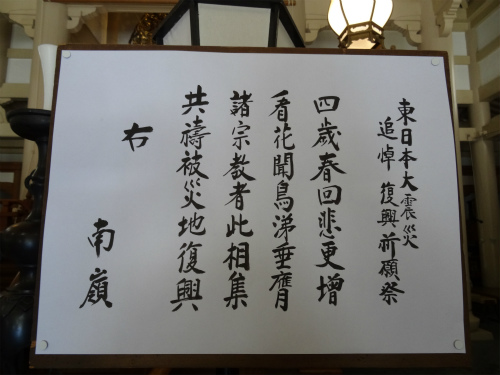 東日本大震災
追悼 復興祈願祭
四歳春回悲更増
看花聞鳥涕垂膺
諸宗教者此相集
共禱被災地復興
右
南嶺